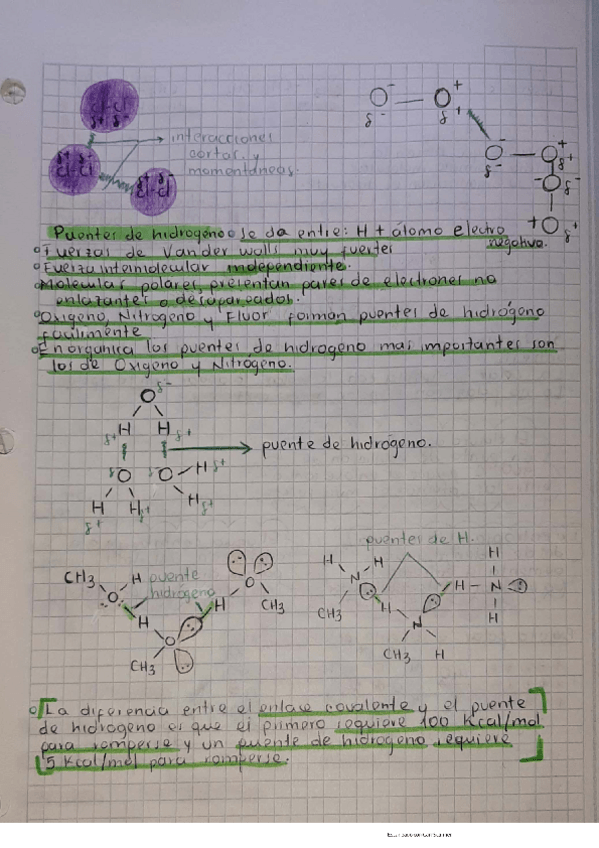 Cl-Cl
δ+ δ-
interacciones
cortas y
momentáneas.
δ+ δ-
Cl-Cl
δ+ δ-
Cl-Cl
O- — O+
δ- δ+
Puentes de hidrogeno se da entre: H + átomo electro
negativo.
Fuerzas de Vander walls muy fuertes
Fuerza intermolecular independiente.
Moleculas polares, presentan pares de electrones no
enlazantes o desapareados.
Oxigeno, Nitrogeno y Fluor forman puentes de hidrógeno
facilmente
En organica los puentes de hidrogeno mas importantes son
los de Oxigeno y Nitrógeno.
O δ-
H H
δ+ δ+
puente de hidrógeno.
O O H δ+
H H H δ+
δ+ δ+
puentes de H.
CH3 H puente
hidrogeno
O H O CH3
H
O
CH3
H H
N
CH3 H
H
H - N
H
N
CH3 H
La diferencia entre el enlace covalente y el puente
de hidrogeno es que el primero requiere 100 Kcal/mol
para romperse y un puente de hidrogeno requiere
5 Kcal/mol para romperse.